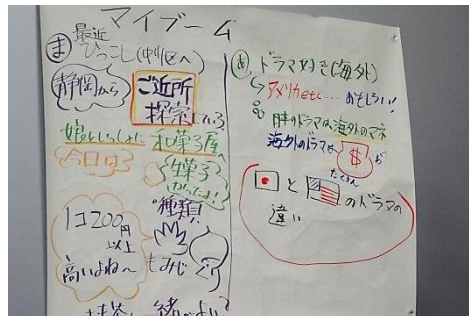 マイブーム
ま 最近
ひっこし(中川区へ)
静岡から
ご近所
探索している
娘といっしょに 和菓子屋へ
今日は3
生菓子
かったよ!
種類!
1コ200円
以上
高いよね~
もみじ
くり
抹茶と一緒がよい?
あ ドラマ好き(海外)
アメリカetc… おもしろい!!
日本のドラマは、海外のマネ
海外のドラマは $が
たくさん
と のドラマの
違い